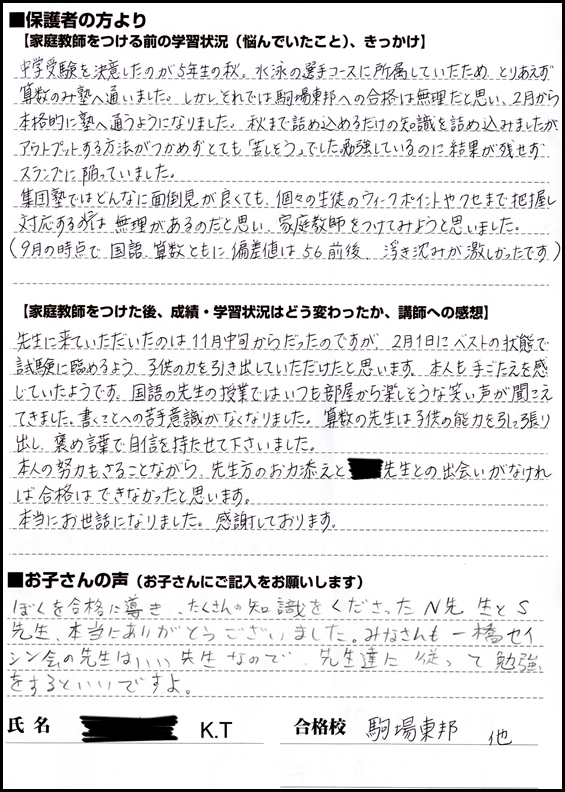 ■保護者の方より
【家庭教師をつける前の学習状況（悩んでいたこと）、きっかけ】
中学受験を決意したのが5年生の秋。水泳の選手コースに所属していたため、とりあえず
算数のみ塾へ通いました。しかしそれでは駒場東邦への合格は無理だと思い、2月から
本格的に塾へ通うようになりました。秋まで詰め込めるだけの知識を詰め込みましたが
アウトプットする方法がつかめずとても「苦しそう」でした。勉強しているのに結果が残せず
スランプに陥っていました。
集団塾ではどんなに面倒見が良くても、個々の生徒のウィークポイントやクセまで把握し
対応するのは無理があるのだと思い、家庭教師をつけてみようと思いました。
（9月の時点で国語、算数ともに偏差値は56前後、浮き沈みが激しかったです）
【家庭教師をつけた後、成績・学習状況はどう変わったか、講師への感想】
先生に来ていただいたのは11月中旬からだったのですが、2月1日にベストの状態で
試験に臨めるよう、子供の力を引き出していただけたと思います。本人も手ごたえを感
じていたようです。国語の先生の授業ではいつも部屋から楽しそうな笑い声が聞こえ
てきました。書くことへの苦手意識がなくなりました。算数の先生は子供の能力を引っ張り
出し、褒め言葉で自信を持たせて下さいました。
本人の努力もさることながら、先生方のお力添えと 先生との出会いがなけれ
ば合格はできなかったと思います。
本当にお世話になりました。感謝しております。
■お子さんの声（お子さんにご記入をお願いします）
ぼくを合格に導き、たくさんの知識をくださったN先生とS
先生、本当にありがとうございました。みなさんも一橋セイ
シン会の先生はいい先生なので、先生達に従って勉強
をするといいですよ。
氏名 K.T 合格校 駒場東邦 他